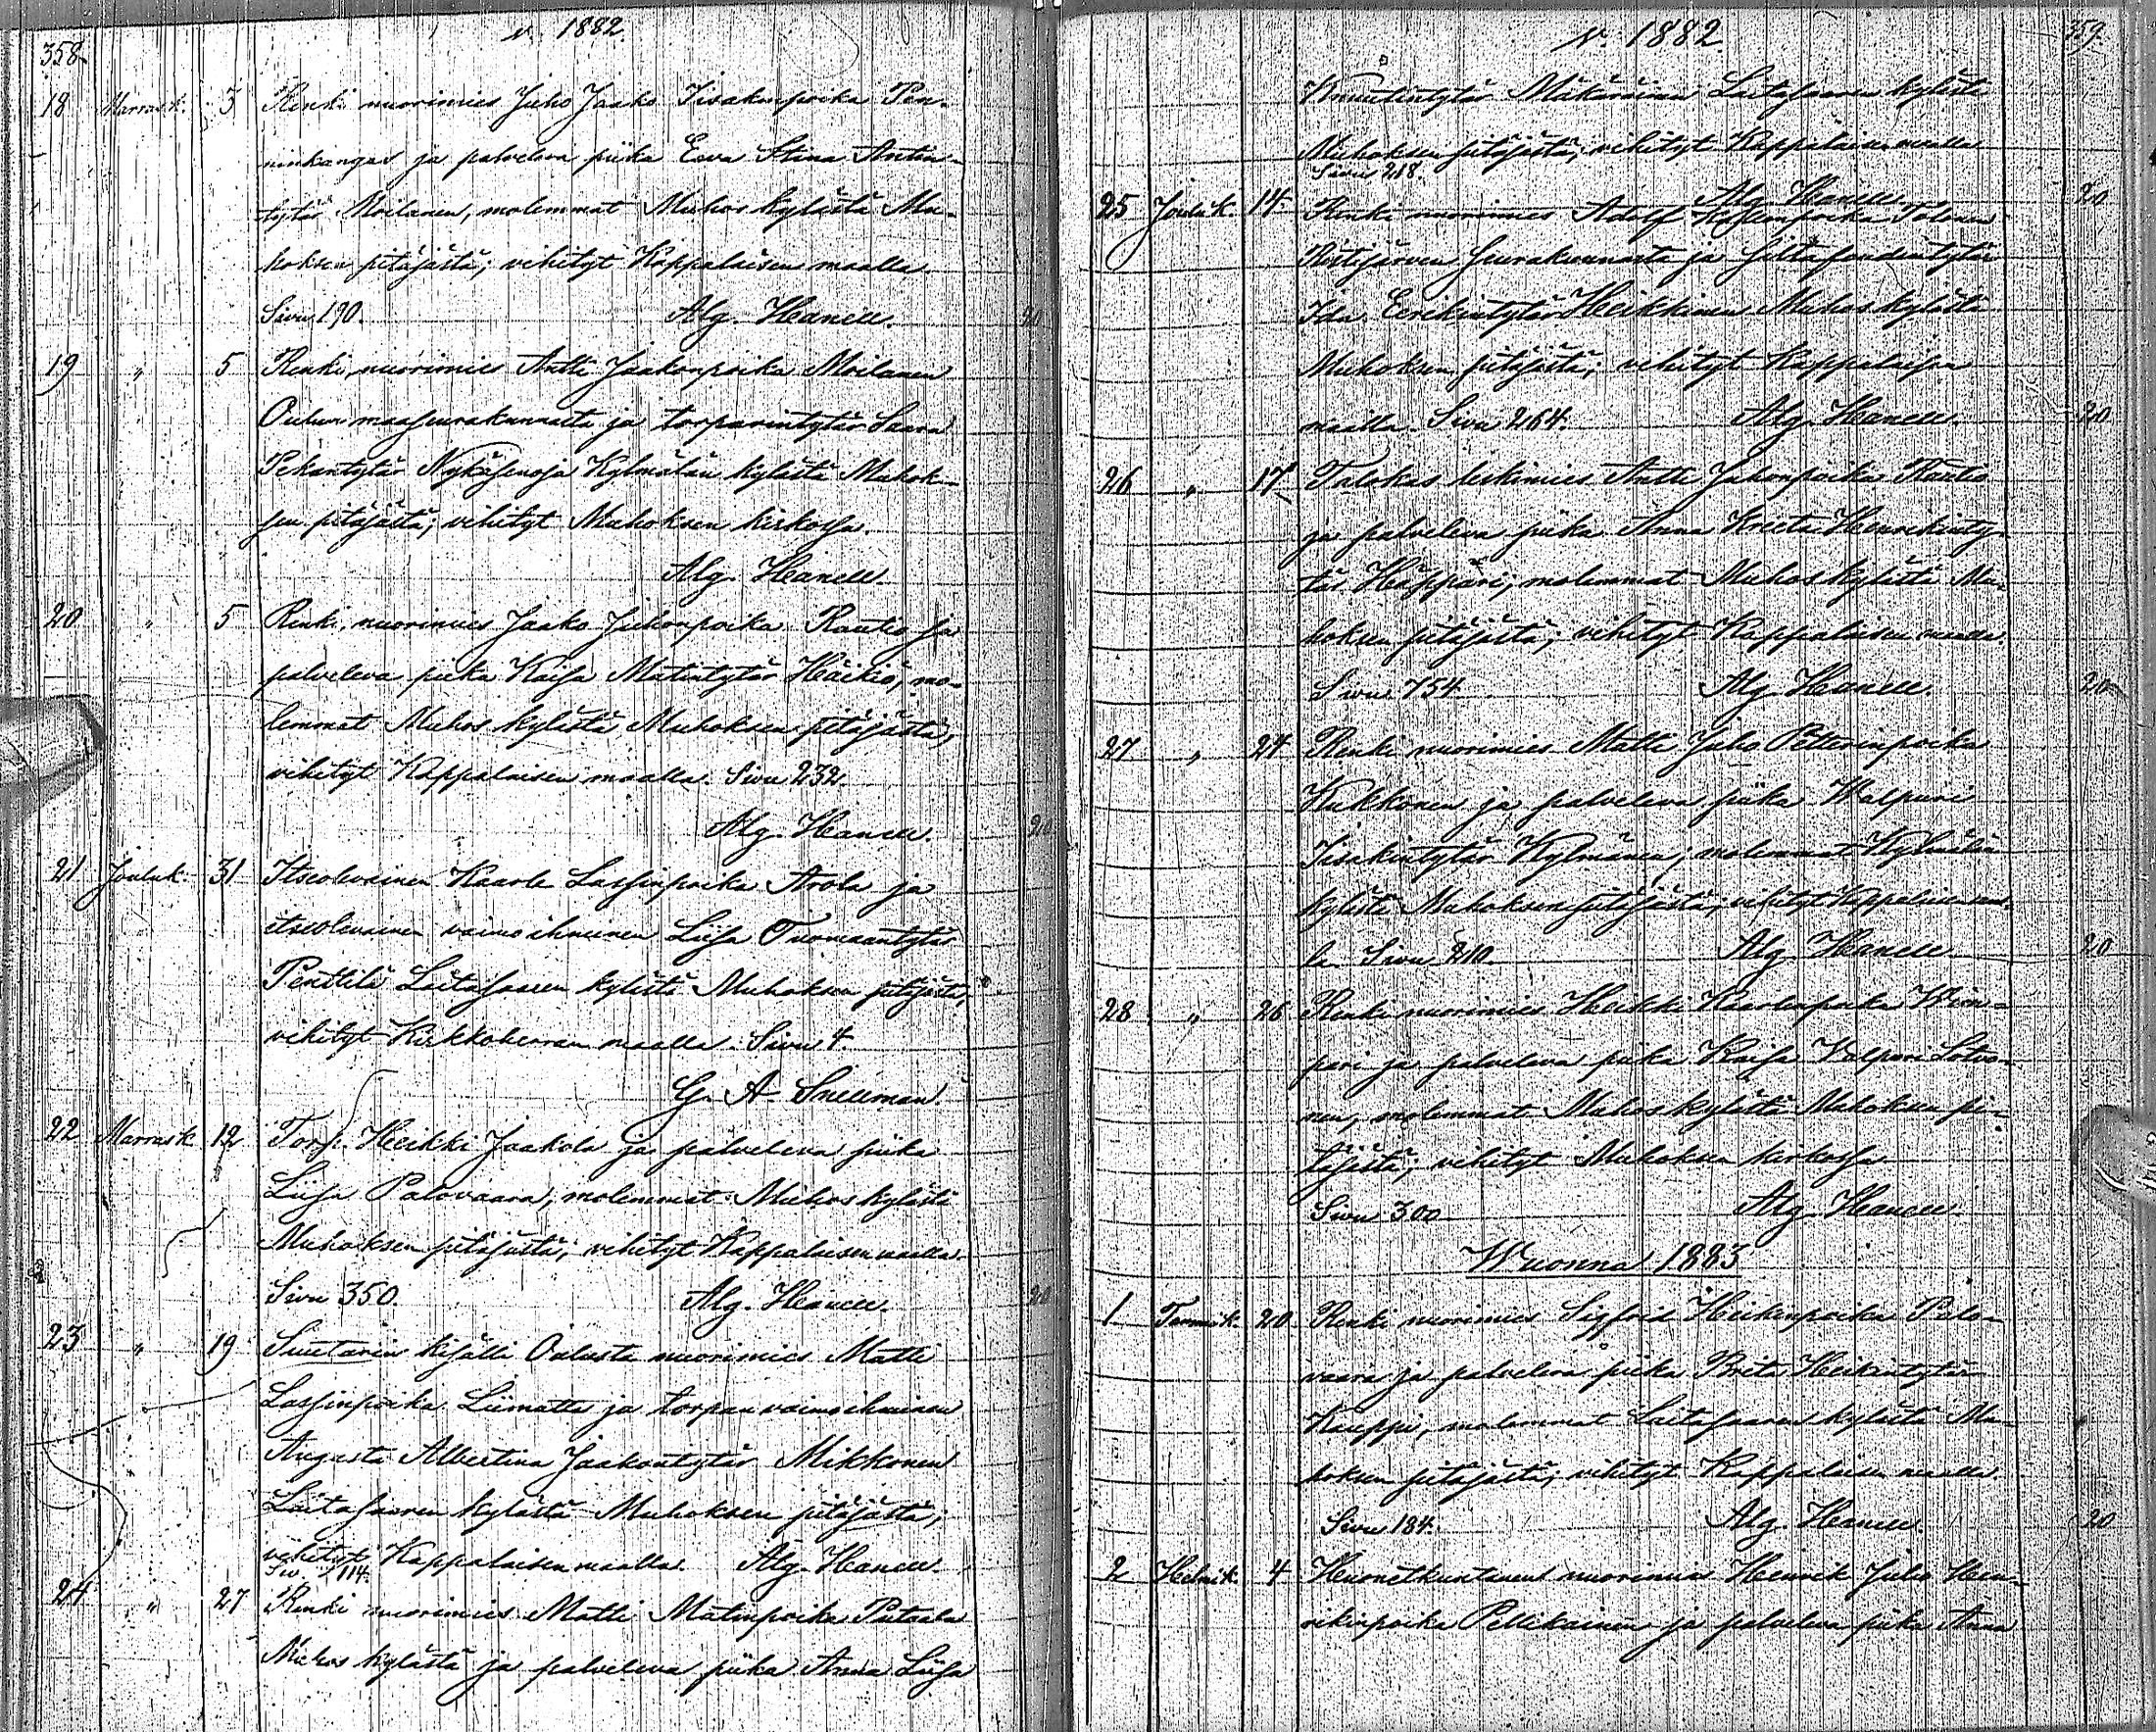 358 v. 1882
18 Marrask. 3 Renki nuorimies Juho Jaako Iisakinpoika Pen-
ninkangas ja palveleva piika Eeva Stina Antin-
tytär Moilanen, molemmat Muhos kylästä Mu-
hoksen pitäjästä; vihityt Kappalaisen maalla.
Sivu 190. Alg. Hanell. 20
19 " 5 Renki, nuorimies Antti Jaakonpoika Moilanen
Oulun maaseurakunnasta ja torparintytär Saara
Pekantytär Nykäsenoja Kylmälän kylästä Muhok-
sen pitäjästä; vihityt Muhoksen kirkossa.
Alg. Hanell.
20 " 5 Renki, nuorimies Jaako Juhonpoika Rautio ja
palveleva piika Kaisa Matintytär Häikiö, mo-
lemmat Muhos kylästä Muhoksen pitäjästä;
vihityt Kappalaisen maalla. Sivu 232.
Alg. Hanell. 20
21 Jouluk. 31 Itseolevainen Kaarle Lassinpoika Arola ja
itseolevainen vaimoihminen Liisa Tuomaantytär
Penttilä Laitasaaren kylästä Muhoksen pitäjästä,
vihityt Kirkkoherran maalla. Sivu 4.
G. A. Snellman.
22 Marrask. 12 Torp. Heikki Jaakola ja palveleva piika
Liisa Palovaara, molemmat Muhos kylästä
Muhoksen pitäjästä; vihityt Kappalaisen maalla.
Sivu 350. Alg. Hanell. 20
23 " 19 Suutarin kisälli Oulusta nuorimies Matti
Lassinpoika Liimatta ja torpan vaimoihminen
Augusta Albertina Jaakontytär Mikkonen
Laitasaaren kylästä Muhoksen pitäjästä;
vihityt Kappalaisen maalla. Alg. Hanell.
Siv. 114.
24 " 27 Renki nuorimies Matti Matinpoika Putaala
Muhos kylästä ja palveleva piika Anna Liisa
v. 1882 359
Knuutintytär Mäkäräinen Laitasaaren kylästä
Muhoksen pitäjästä; vihityt Kappalaisen maalla
Sivu 218. Alg. Hanell. 20
25 Jouluk. 14 Renki nuorimies Adolf Tolonen
Ristijärven seurakunnasta ja
Ida Eerikintytär Heikkinen Muhos kylästä
Muhoksen pitäjästä; vihityt Kappalaisen
maalla. Sivu 264. Alg. Hanell. 20
26 " 17 Talokas leskimies Antti Juhonpoika Rautio
ja palveleva piika Anna Kreeta Henrikinty-
tär Häppäri; molemmat Muhos kylästä Mu-
hoksen pitäjästä; vihityt Kappalaisen maalla.
Sivu 754. Alg. Hanell. 20
27 " 24 Renki nuorimies Matti Juho Petterinpoika
Kukkonen ja palveleva piika Walpuri
Iisakintytär Kylmänen; molemmat Kylmälän
kylästä Muhoksen pitäjästä; vihityt Kappalaisen maal-
la. Sivu 210. Alg. Hanell. 20
28 " 26 Renki nuorimies Heikki Kaarlenpoika Wim-
pari ja palveleva piika Kaisa Valpuri Lotvo-
nen, molemmat Muhos kylästä Muhoksen pi-
täjästä; vihityt Muhoksen kirkossa.
Sivu 300 Alg. Hanell.
Wuonna 1883
1 Tammik. 20 Renki nuorimies Sigfrid Heikinpoika Palo-
vaara ja palveleva piika Brita Heikintytär
Kauppi, molemmat Laitasaaren kylästä Mu-
hoksen pitäjästä; vihityt Kappalaisen maalla
Sivu 184. Alg. Hanell. 20
2 Helmik. 4 nuorimies Henrik Juho Hen-
rikinpoika Pellikainen ja palveleva piika Anna